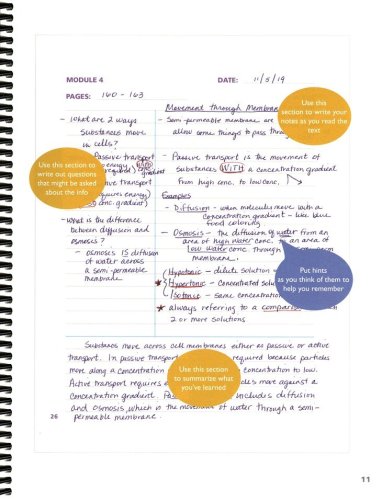 MODULE 4
DATE: 11/5/19
PAGES: 160 - 163
Movement through Membran
- Semi-permeable membrane are
allow some things to pass throu
- Passive transport is the movement of
Substances WITH a concentration gradient
From high conc. to low conc.
Examples
- Diffusion - when molecules move with a
concentration gradient - like blue
food coloring
- Osmosis - the diffusion of water from an
area of high water conc. to an area of
low water conc. through
membrane.
Hypotonic - dilute solution
Hypertonic - Concentrated solu
Isotonic - Same concentration
always referring to a comparis
2 or more solutions
- What are 2 ways
Substances move
in cells?
Passive transport
energy WITH conc.
gradient
Active transport
requires energy
conc. gradient)
- What is the difference
between diffusion and
osmosis?
- osmosis IS diffusion
of water across
a semi-permeable
membrane
Substances move across cell membranes either as passive or active
transport. In passive transport required because particles
move along a concentration concentration to low.
Active transport requires e cles move against a
concentration gradient. Pas includes diffusion
and osmosis, which is the movement of water through a semi-
permeable membrane.
Use this
section to write your
notes as you read the
text
Use this section to
write out questions
that might be asked
about the info
Put hints
as you think of them to
help you remember
Use this section
to summarize what
you've learned
26
11